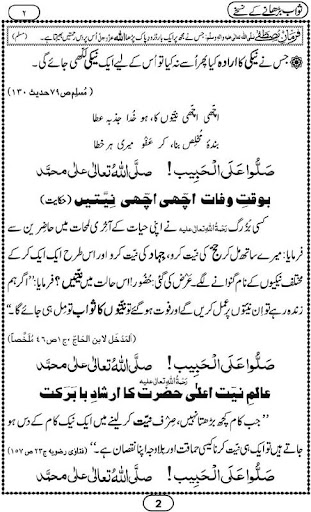 ثواب بڑھانے کے نسخے
۲
فرمانِ مصطفےٰ صلی اللہ تعالیٰ علیہ والہٖ وسلم: جس نے مجھ پر ایک بار دُرودِ پاک پڑھا اللہ عزوجل اُس پر دس رحمتیں بھیجتا ہے۔ (مسلم)
جس نے نیکی کا ارادہ کیا پھر اُسے نہ کیا تو اُس کے لیے ایک نیکی لکھی جائے گی۔
(مُسلِم ص۷۹ حدیث ۱۳۰)
اچھی اچھی نیّتوں کا، ہو خدا جذبہ عطا
بندۂ مخلص بنا، کر عفو میری ہر خطا
صَلُّوا عَلَی الْحَبِیب! صلَّی اللہُ تعالٰی علٰی محمَّد
بوقتِ وفات اچھی اچھی نیّتیں (حکایت)
کسی بُزُرگ رَحْمَۃُ اللہِ تعالیٰ علیہ نے اپنی حیات کے آخری لمحات میں حاضِرین سے
فرمایا: میرے ساتھ مل کر حج کی نیّت کرو، جہاد کی نیّت کرو اور اس طرح ایک ایک کر کے
مختلف نیکیوں کے نام گنوانے لگے۔ عرض کی گئی: حُضُور! اس حالت میں نیّتیں؟ فرمایا: ’’اگر ہم
زندہ رہے تو اِن نیّتوں پر عمل کریں گے اور فوت ہو گئے تو نیّتوں کا ثواب تو مِل ہی جائے گا۔‘‘
(اَلمَدخَل لابن الحاج ج۱ ص۴۶ مُلَخَّصاً)
صَلُّوا عَلَی الْحَبِیب! صلَّی اللہُ تعالٰی علٰی محمَّد
عالمِ نیّت اعلیٰ حضرت رَحْمَۃُ اللہِ تعالیٰ علیہ کا ارشادِ با برکت
’’جب کام کچھ بڑھتا نہیں، صِرف نیّت کر لینے میں ایک نیک کام کے دس ہو
جاتے ہیں تو ایک ہی نیّت کرنا کیسی حماقت اور بلا وجہ اپنا نقصان ہے۔‘‘ (فتاوٰی رضویہ ج۲۳ ص۱۵۷)
صَلُّوا عَلَی الْحَبِیب! صلَّی اللہُ تعالٰی علٰی محمَّد
2